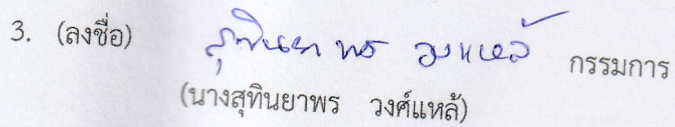 3. (ลงชื่อ) สุทินยาพร วงแหล้ กรรมการ
(นางสุทินยาพร วงศ์แหล้)